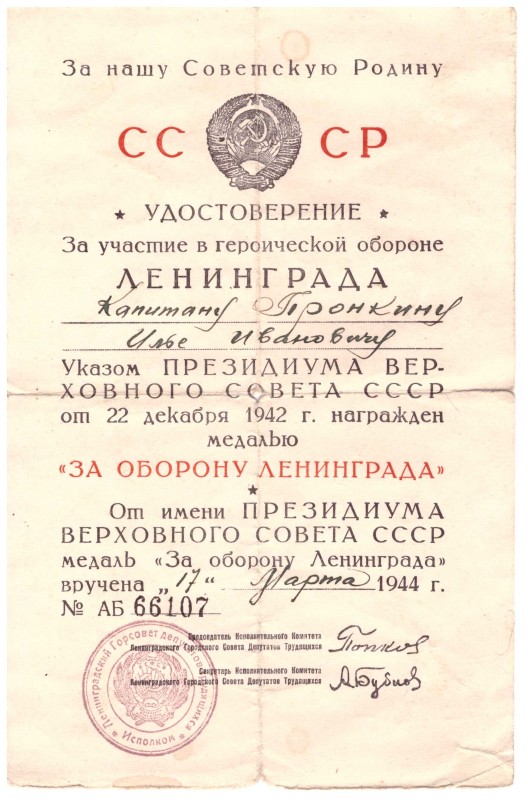 За нашу Советскую Родину
СС СР
★ УДОСТОВЕРЕНИЕ ★
За участие в героической обороне
ЛЕНИНГРАДА
Капитану Пронкину
Илье Ивановичу
Указом ПРЕЗИДИУМА ВЕР-
ХОВНОГО СОВЕТА СССР
от 22 декабря 1942 г. награжден
медалью
«ЗА ОБОРОНУ ЛЕНИНГРАДА»
★
От имени ПРЕЗИДИУМА
ВЕРХОВНОГО СОВЕТА СССР
медаль «За оборону Ленинграда»
вручена „17“ Марта 1944 г.
№ АБ 66107
Председатель Исполнительного Комитета
Ленинградского Городского Совета Депутатов Трудящихся
Попков
Секретарь Исполнительного Комитета
Ленинградского Городского Совета Депутатов Трудящихся
А Бубнов
Ленинградский Горсовет депутатов трудящихся
★ Исполком ★